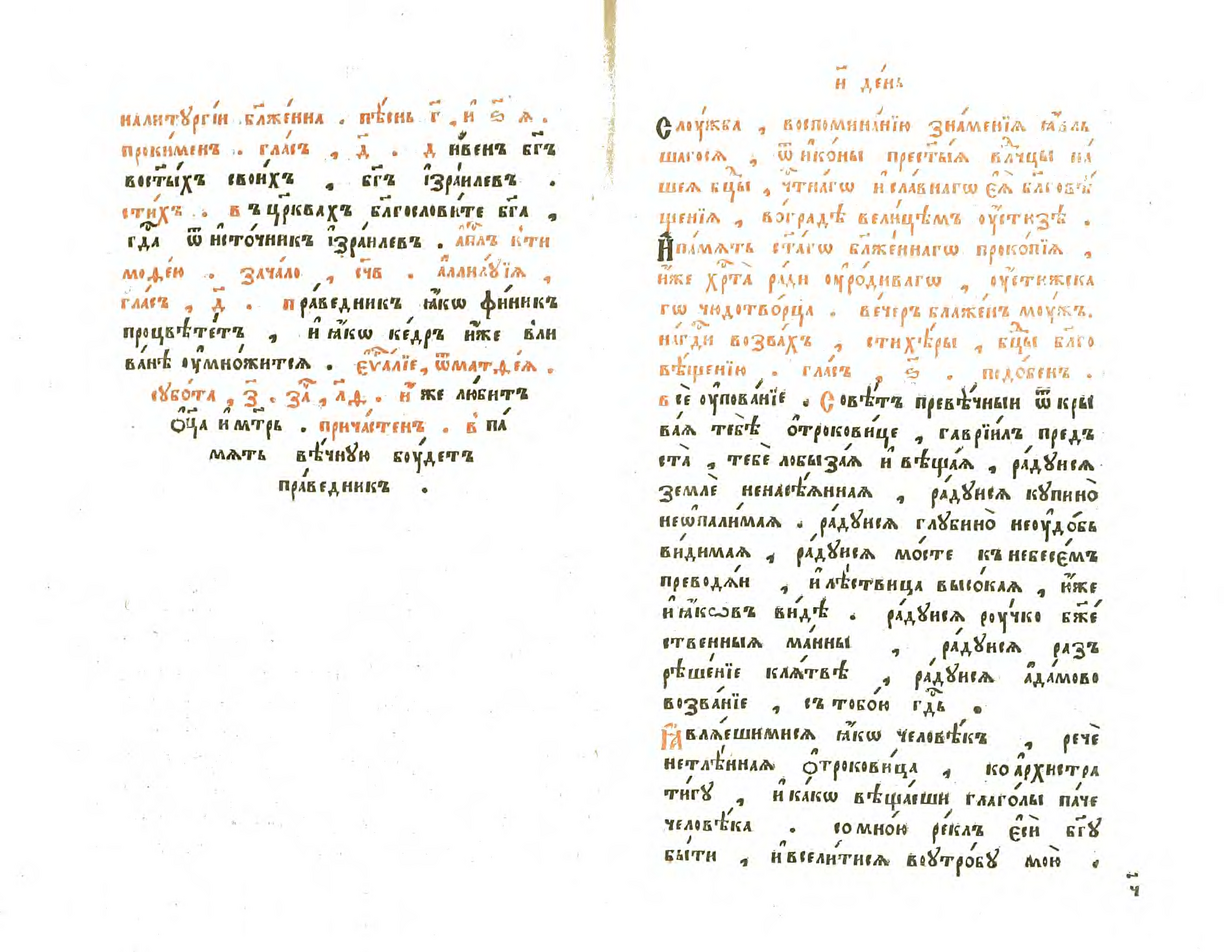 налитꙋргі́и бл҃же́нна . пѣ́снь г҃ , и҆ ѕ҃ ѧ .
проки́менъ . гла́съ , д҃ . ди́венъ бг҃ъ
востⷯы́хъ свои́хъ , бг҃ъ і҆зра́илевъ .
сти́хъ . въ цр҃квахъ благослови́те бг҃а ,
гдⷭ҇а ѿ исто́чникъ і҆зра́илевъ . а҆пⷭ҇лъ к ти
моѳе́ю . зача́ло , сч҃в . аллилꙋ́їѧ ,
гла́съ , д҃ . пра́ведникъ ꙗ҆́кѡ фи́никъ
процвѣте́тъ , и҆ ꙗ҆́кѡ ке́дръ и҆́же вли
ва́нѣ оу҆мно́житсѧ . є҆ѵⷢ҇а́лїе , ѿматѳе́ѧ .
сꙋбо́та , з҃ . за҃ , л҃д . и҆́же лю́битъ
ѻ҆ц҃а и҆ мт҃рь . прича́стенъ . в па
мѧть вѣ́чнꙋю боу́детъ
пра́ведникъ .
и҃ де́нь
Слоу́жба , воспомина́нїю зна́менїѧ ꙗ҆́вль
шагосѧ , ѿ и҆ко́ны прест҃ы́ѧ влⷣчцы на́
шеѧ бцⷣы , чтⷭ҇наго и҆ сла́внаго є҆ѧ̀ бл҃гові
щенїѧ , во гра́дѣ вели́цѣмъ оу҆́стюзѣ .
И҆ па́мѧть ст҃а́гѡ бл҃же́ннагѡ проко́пїѧ ,
и҆́же хрⷭ҇та̀ ра́ди оу҆ро́диваго , оу҆́стюжска
гѡ чюдотво́рца . ве́черъ блаже́нъ моу́жъ .
на гдⷭ҇и возва́хъ , стихѣ́ры , бцⷣы бл҃го
вѣ́щенїю . гла́съ , ѕ҃ . подо́бенъ .
все оу҆пова́нїе . Совѣ́тъ превѣ́чныи ѿкры
ва́ѧ тебѣ̀ ѻ҆трокови́це , гаврїи́лъ предъ
ста̀ , тебѐ лобыза́ѧ и҆ вѣща́ѧ , ра́дꙋисѧ
землѐ ненасѣ́ѧннаѧ , ра́дꙋисѧ кꙋпино̀
неѡпали́маѧ . ра́дꙋисѧ глꙋбино̀ неоудо́бь
ви́димаѧ , ра́дꙋисѧ мо́сте къ небесе́мъ
преводѧ́и , и҆ лѣ́ствица высо́каѧ , ю҆́же
и҆ꙗ҆́кѡвъ ви́дѣ . ра́дꙋисѧ роу́чко бж҃е́
ственныѧ ма́нны , ра́дꙋисѧ раз
рѣше́нїе клѧ́твѣ , ра́дꙋисѧ а҆да́мово
возва́нїе , съ тобо́ю гдⷭ҇ь .
Ꙗ҆влѧ́ешимисѧ ꙗ҆́кѡ человѣ́къ , речѐ
нетлѣ́ннаѧ ѻ҆трокови́ца , ко а҆рхистра
ти́гꙋ , и҆ ка́кѡ вѣща́еши глаго́лы па́че
человѣ́ка . со мно́ю ре́клъ є҆сѝ бг҃ꙋ
бы́ти , и҆ всели́тисѧ воутро́бꙋ мою̀ .
ч҃